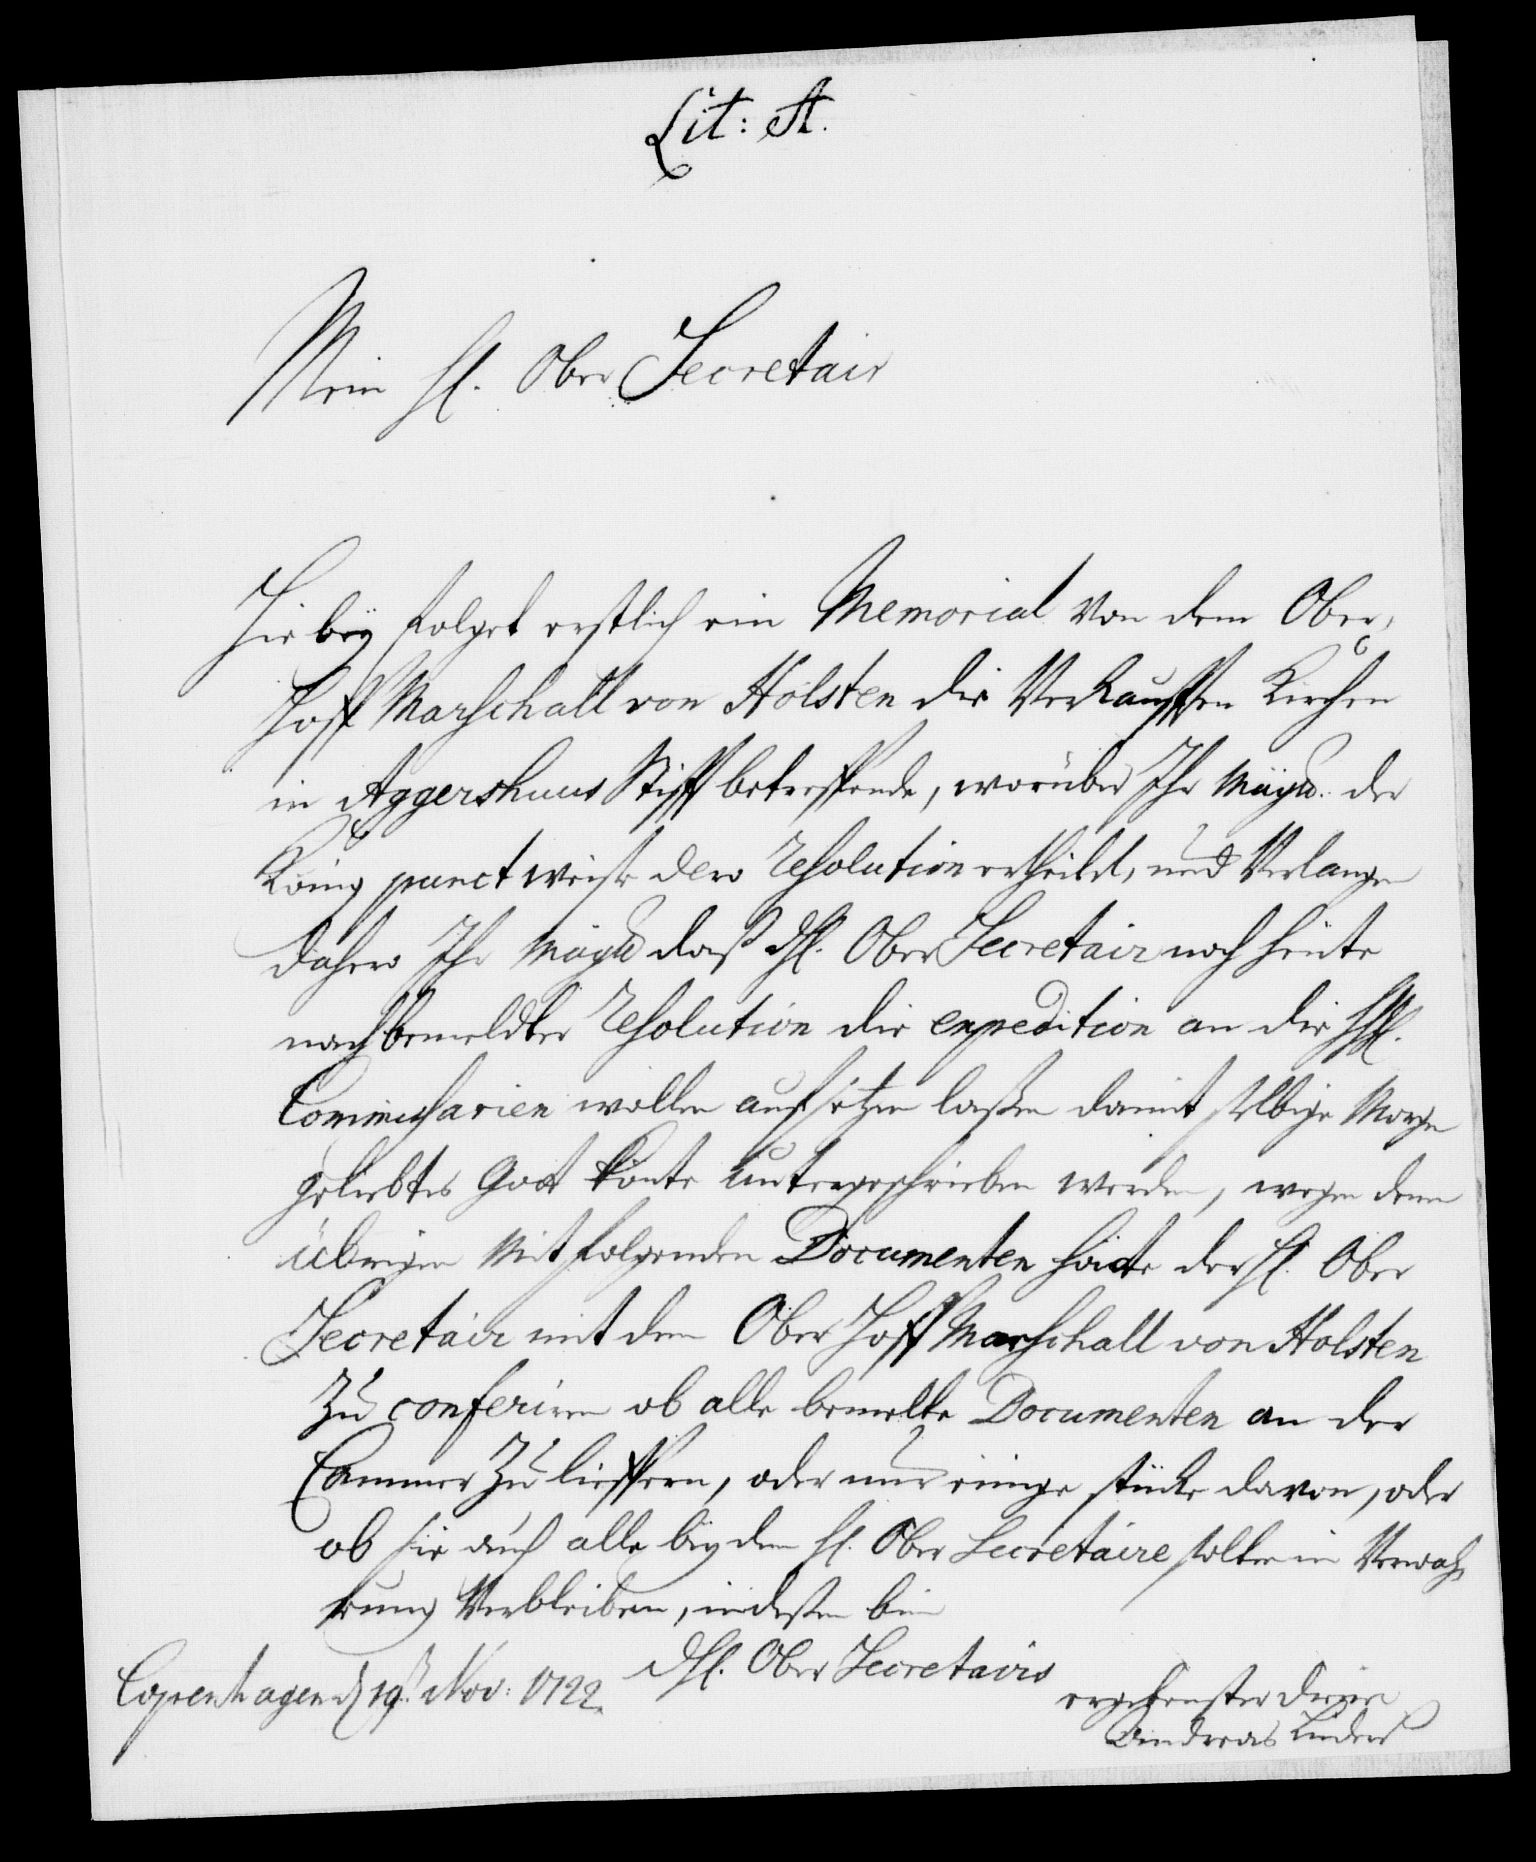 Lit: A.
Mein H. Ober Secretair
Hie beÿ folget erstlich ein Memorial von dem Ober,
Hoff Marschall von Holsten die Verkaufften Kirchen
in Aggershuus Stifft betreffende, worüber Ihr Mayts. der
König punct weise dero resolution ertheilet, und Verlangen
dahero Ihr Mayts daß dH. Ober Secretair noch heüte
nach bemeldter resolution die expedition an die HH.
Commissarien wollen auf setzen laßen damit selbige Morgen
geliebtes Gott könte unter geschrieben werden, wegen denen
übrigen Mit folgenden Documenten hätte der H. Ober
Secretair mit dem Ober Hoff Marschall von Holsten
Zu conferiren ob alle bemelte Documenten an der
Cammer Zu lieffern, oder nur einige stücke davon, oder
ob sie auch alle beÿ dem H. Ober Secretaire solten in Verwah
rung Verbleiben, indeßen bin
dH. Ober Secretairs
Copenhagen d 19t Nov: 1722.
ergebenster diener
Andreas Lüders